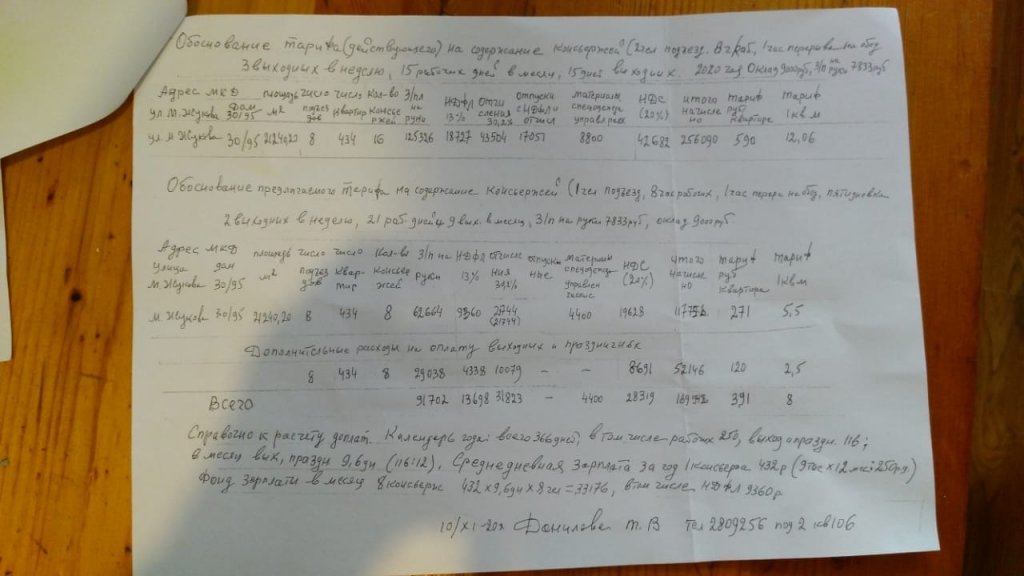 Обоснование тарифа (действующего) на содержание консьержей (2 чел подъезд. 8ч раб, 1час перерыва на обед
3 выходных в неделю, 15 рабочих дней в месяц, 15 дней выходных. 2020 год Оклад 9000руб, З/п на руки 7833руб
Адрес МКД площадь число число кол-во З/пл НДФЛ Отчи отпускн материалы НДС итого тариф тариф
ул М. Жукова Дом 30/95 м² подъез дов квартир консье ржей на руки 13% сления 30,2% с НДФЛ и отчисл спецодежда управл расх (20%) начисле но руб квартира 1 кв м
ул. М Жукова 30/95 21240,20 8 434 16 125326 18727 43504 17051 8800 42682 256090 590 12,06
Обоснование предлагаемого тарифа на содержание консьержей (1 чел подъезд, 8 час рабочих, 1 час перерв на обед, пятидневка
2 выходных в неделю, 21 раб дней и 9 вых. в месяц, З/п на руки 7833руб, оклад 9000руб
Адрес МКД площадь число число кол-во З/п на НДФЛ отчисле отпускн материалы НДС итого тариф тариф
улица дом м² подъез дов квар- тир консье ржей руки 13% ния 30,2% ные спецодежда (20%) начисле но руб 1 кв м
М. Жукова 30/95 квартира
М. Жукова 30/95 21240,20 8 434 8 62664 9360 21744 (21744) 4400 19628 271 5,5
Дополнительные расходы на оплату выходных и праздничных
8 434 8 29038 4338 10079 – – 8691 52146 120 2,5
Всего 91702 13698 31823 – 4400 28319 391 8
Справочно к расчету доплат. Календарь года: всего 366 дней, в том числе рабочих 250, выход и праздн. 116;
в месяц вых, праздн 9,6 дн (116:12), Среднедневная зарплата за год 1 консьера 432 р
Фонд зарплаты в месяц 8 консьерж 432 × 9,6дн × 8 чел = 33176, в том числе НДФЛ 9360 р
10/XI-20г Данилова Т. В Тел 2809256 под 2 кв 106